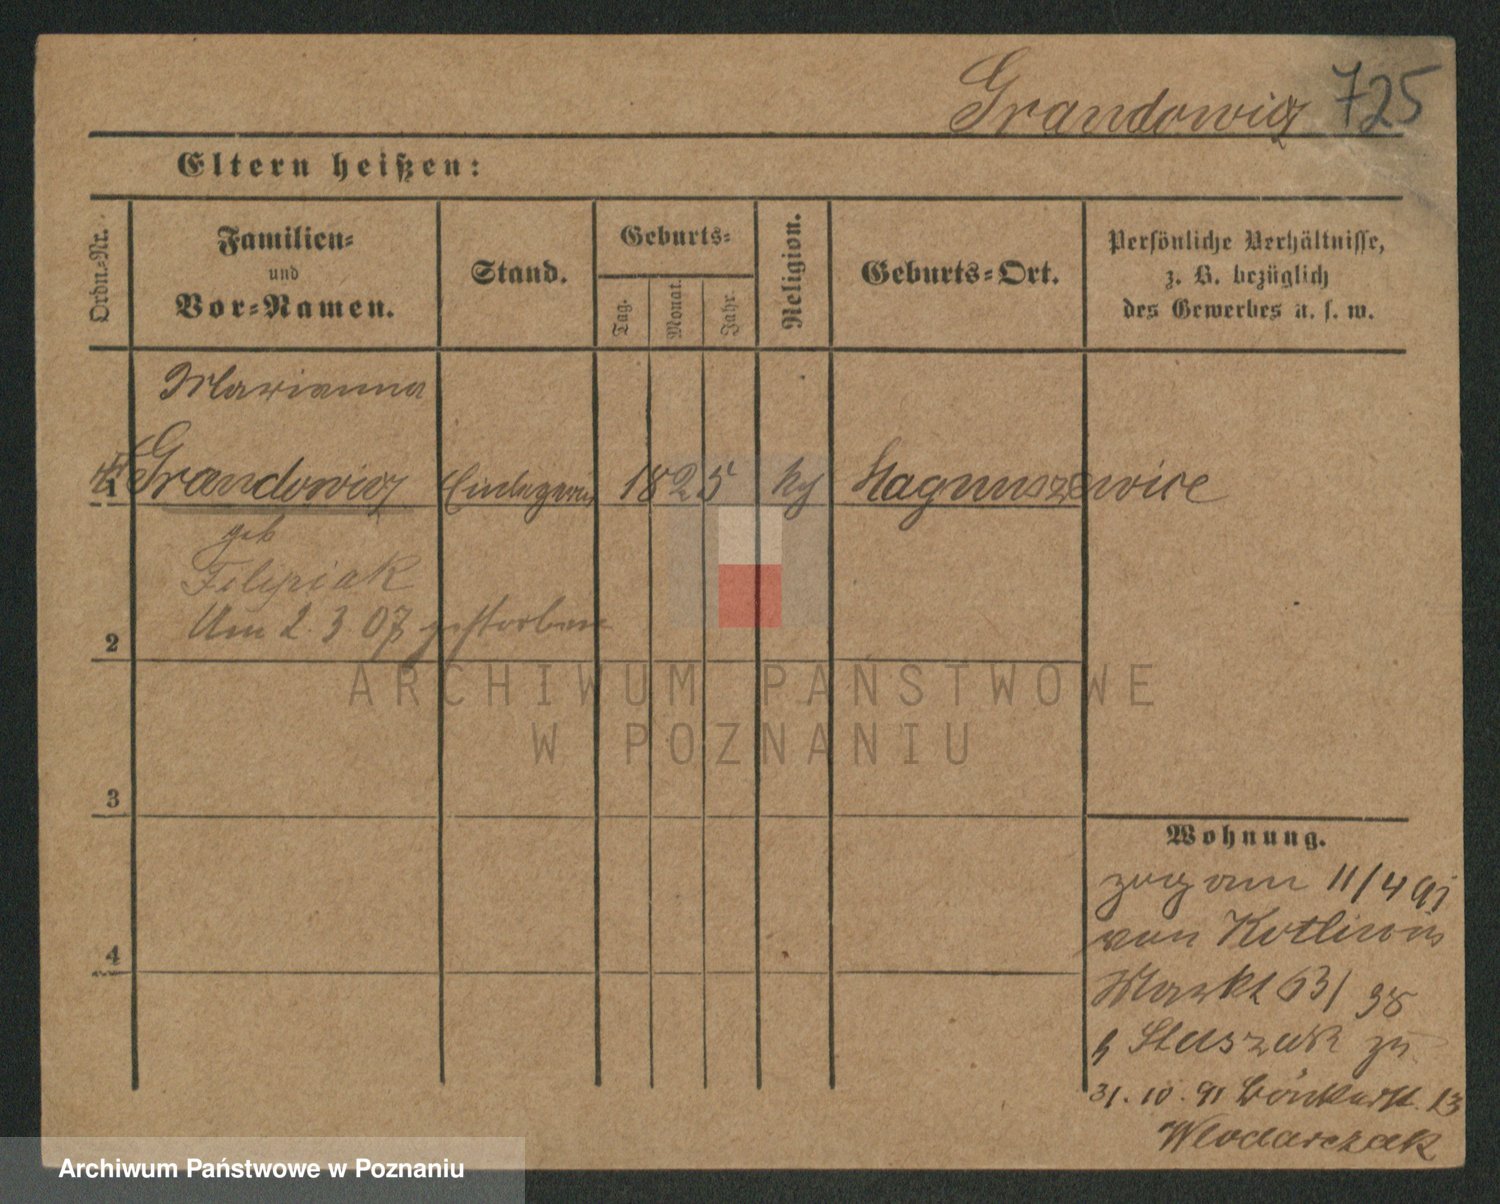 Grandowicz 725
Eltern heißen:
Ordn.-Nr.
Familien-
und
Vor-Namen.
Stand.
Geburts-
Tag.
Monat.
Jahr.
Religion.
Geburts-Ort.
Persönliche Verhältnisse,
z. B. bezüglich
des Gewerbes u. s. w.
Marianna
1 Grandowicz 1825 Magnuszewice
geb
Filipiak
Am 2. 3 07 gestorben
2
3
4
Wohnung.
zog am 11/4 91
von Kotlin
Markt 63/
Staszak zu
31. 10. 91 13
Wlodarczak
ARCHIWUM PAŃSTWOWE
W POZNANIU
Archiwum Państwowe w Poznaniu